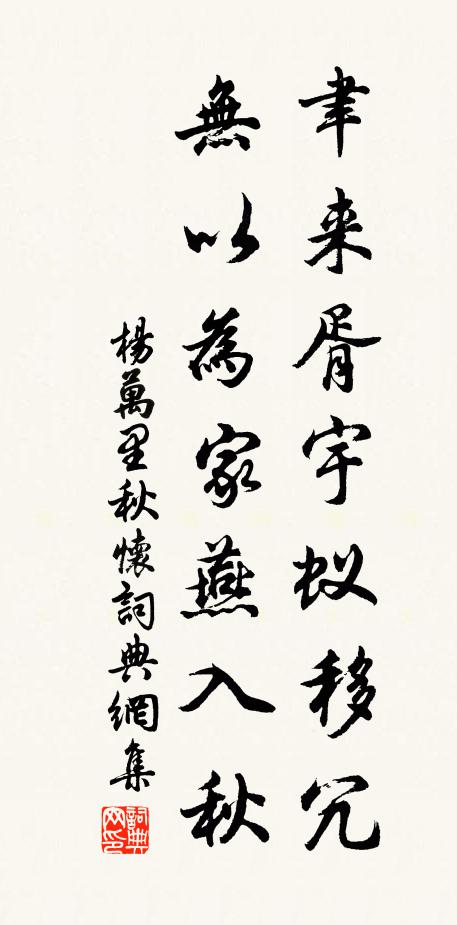 聿来胥宇蚁移穴
無以為家燕入秋
楊萬里秋懷詞典網集
詞典
网印